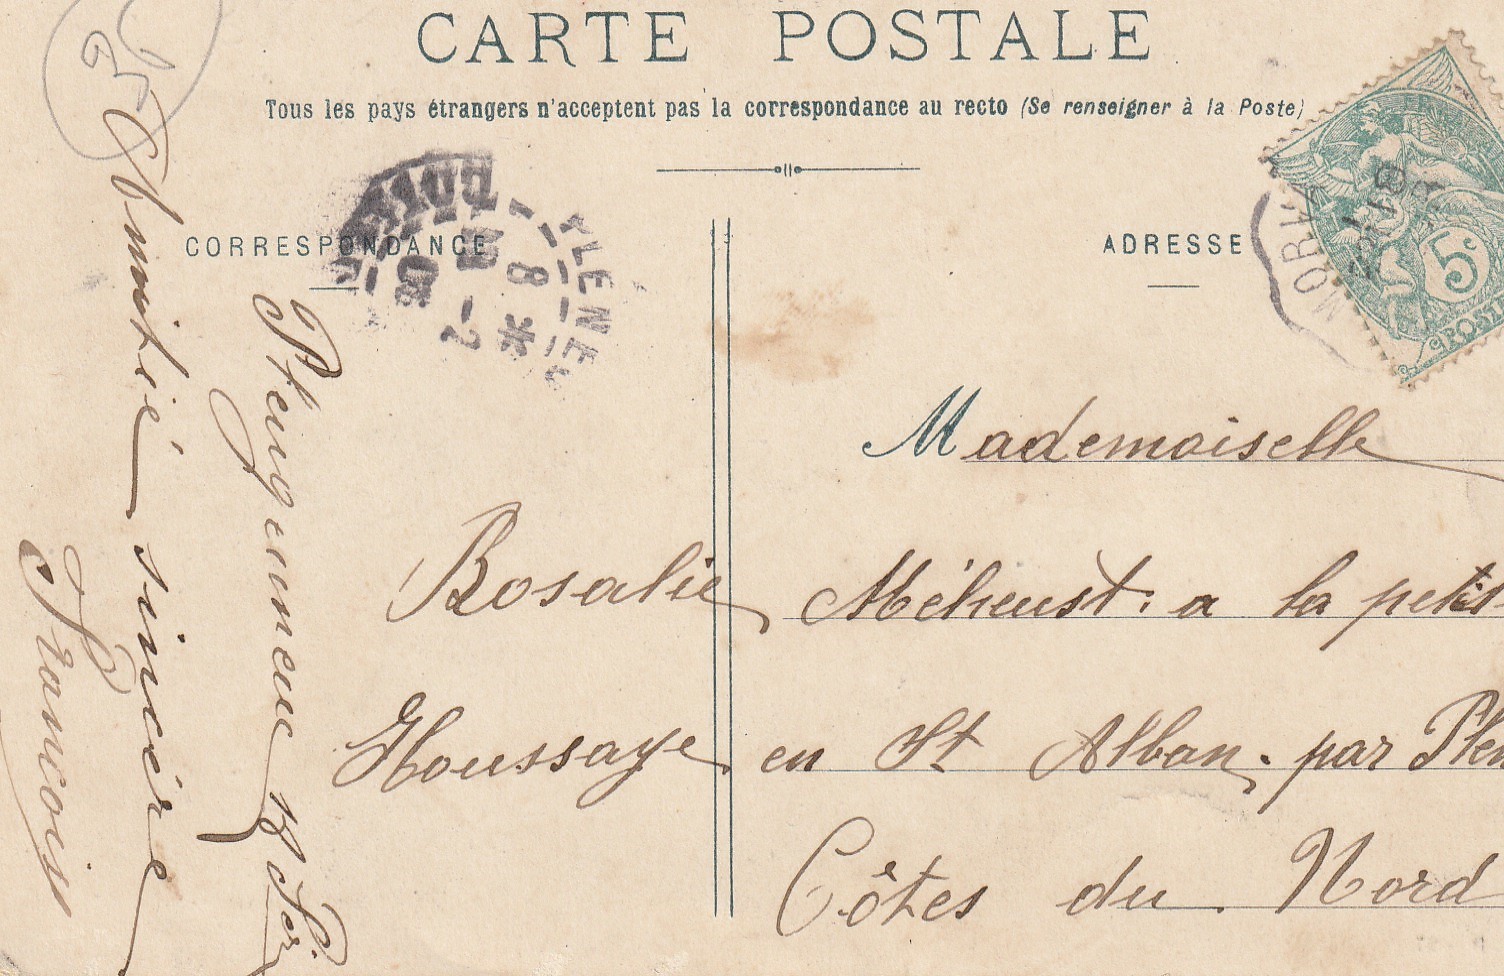 CARTE POSTALE
Tous les pays étrangers n'acceptent pas la correspondance au recto (Se renseigner à la Poste)
CORRESPONDANCE
ADRESSE
5c
POST
PLENE
8 *
7 - 2
08
Mademoiselle
Rosalie Méheust. a la petit
Houssaye en St Alban. par Plen
Côtes du Nord
Plenguenenc 18 Fer
Amitié sincère
Francois